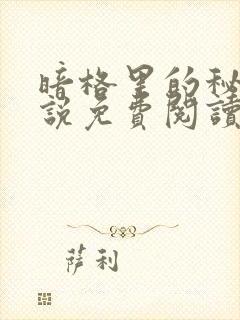 暗格里的秘
說免費閱讀
萨利